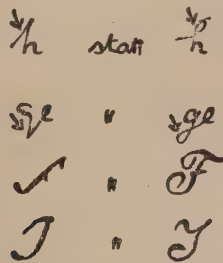 h statt h
ge " ge
" F
J " J